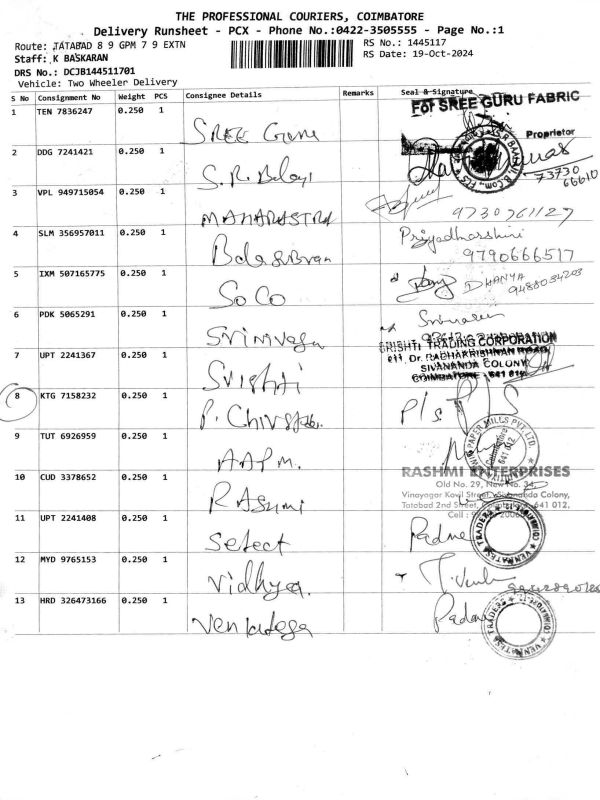 THE PROFESSIONAL COURIERS, COIMBATORE
Delivery Runsheet - PCX - Phone No.:0422-3505555 - Page No.:1
Route: TATABAD 8 9 GPM 7 9 EXTN
RS No.: 1445117
Staff: K BASKARAN
RS Date: 19-Oct-2024
DRS No.: DCJB144511701
Vehicle: Two Wheeler Delivery
S No Consignment No Weight PCS Consignee Details Remarks Seal & Signature
For SREE GURU FABRIC
1 TEN 7836247 0.250 1 SREE Guru
Proprietor
73730
66610
2 DDG 7241421 0.250 1 S.R. Balaji
3 VPL 949715054 0.250 1 MAHARASTRA
9730761127
4 SLM 356957011 0.250 1 Priyadharshini
9790666517
5 IXM 507165775 0.250 1 SoCo DHANYA
9488034203
6 PDK 5065291 0.250 1 Srinivasa
7 UPT 2241367 0.250 1 Srishti
SRISHTI TRADING CORPORATION
SIVANANDA COLONY
COIMBATORE - 641 012
8 KTG 7158232 0.250 1 P.
9 TUT 6926959 0.250 1 A A P M.
PAPER MILLS PVT. LTD.
641 012
10 CUD 3378652 0.250 1 RASHMI
RASHMI ENTERPRISES
Old No. 29, New No. 34,
Vinayagar Kovil Street, Sivananda Colony,
Tatabad 2nd Street, Coimbatore-641 012.
Cell :
11 UPT 2241408 0.250 1 Select
VENKATESA TRADERS
12 MYD 9765153 0.250 1 Vidhya.
13 HRD 326473166 0.250 1 Venkatesa
VENKATESA TRADERS